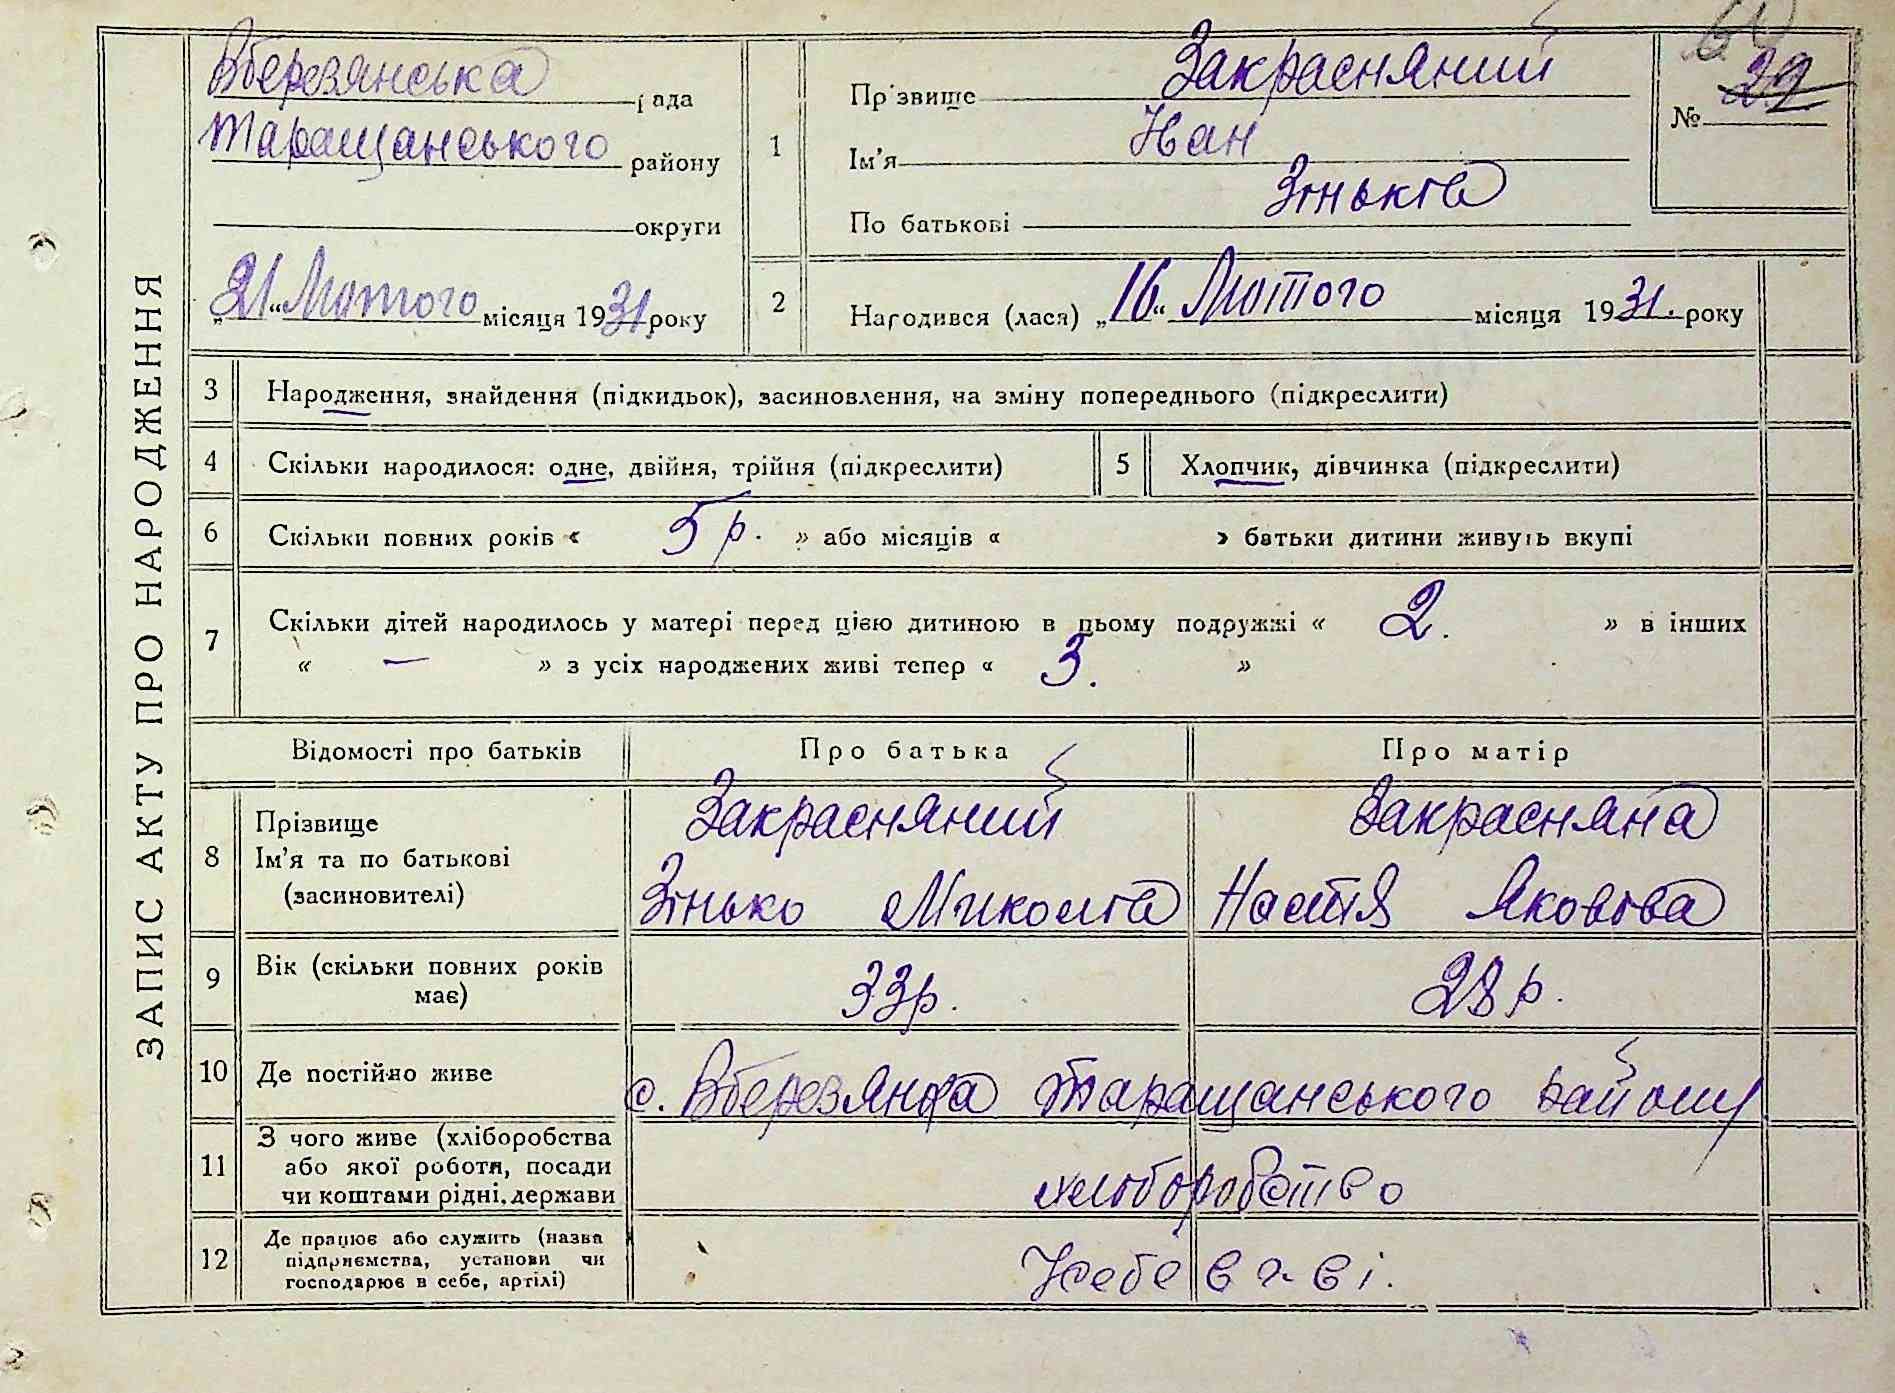 ЗАПИС АКТУ ПРО НАРОДЖЕННЯ
Вберезянська рада
Таращанського району
округи
„21“ Лютого місяця 1931 року
1
Прізвище Закрасняний
Ім'я Іван
По батькові Зіньків
№ 29
2
Народився (лася) „16“ Лютого місяця 1931. року
3 Народження, знайдення (підкидьок), засиновлення, на зміну попереднього (підкреслити)
4 Скільки народилося: одне, двійня, трійня (підкреслити)
5 Хлопчик, дівчинка (підкреслити)
6 Скільки повних років « 5 р. » або місяців « » батьки дитини живуть вкупі
7 Скільки дітей народилось у матері перед цією дитиною в цьому подружжі « 2. » в інших
« — » з усіх народжених живі тепер « 3. »
Відомості про батьків Про батька Про матір
8 Прізвище Ім'я та по батькові (засиновителі)
Закрасняний Закрасняна
Зінько Настя Яковова
9 Вік (скільки повних років має) 33 р. 28 р.
10 Де постійно живе с. Вберезянка Таращанського району
11 З чого живе (хліборобства або якої роботи, посади чи коштами рідні, держави хліборобство
12 Де працює або служить (назва підприємства, установи чи господарює в себе, артілі)